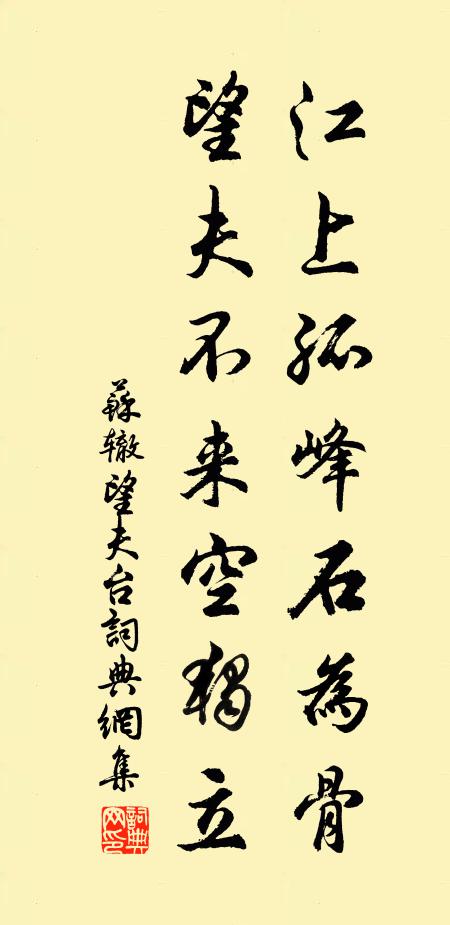 江上孤峰石為骨
望夫不来空獨立
蘇辙望夫台詞典網集
詞典
网印